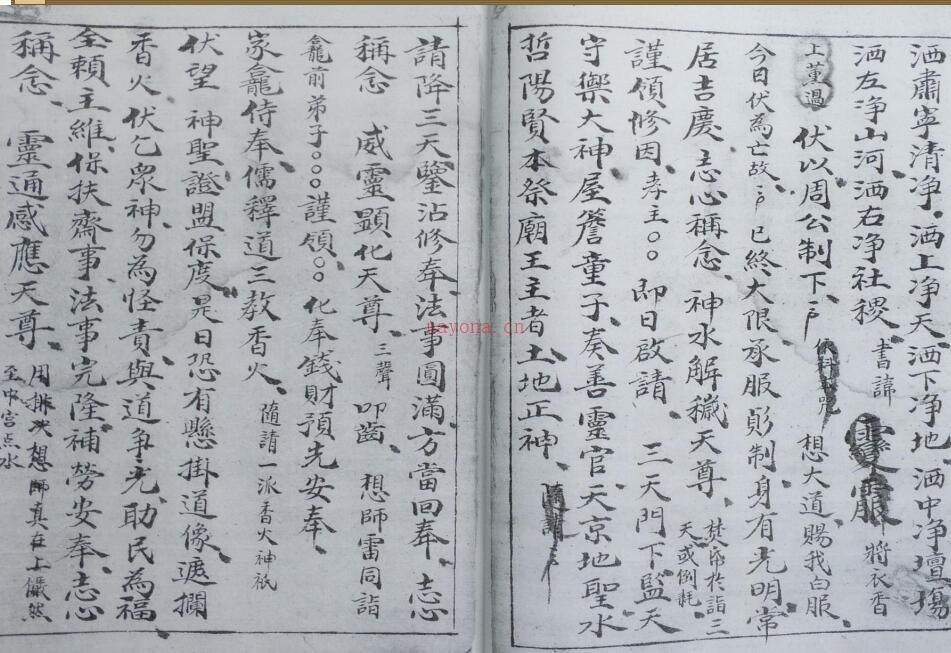 洒肅寧清净。洒上净天洒下净地洒中净壇塲
洒左净山河洒右净社稷 書諱 將衣香
上薰過 伏以周公制下 想大道賜我白服
今日伏為亡故 已終大限承服 制身有光明常
居吉慶志心稱念 神水解穢天尊
天或倒
謹領修因孝主○○即日啟請 三天門下監天
守禦大神屋簷童子奏善靈官天京地聖水
哲陽賢本祭廟王主者土地正神
隨請
請降三天鑒沾修奉法事圓滿方當回奉志心
稱念 威靈顯化天尊 三聲 叩齒 想師雷同詣
龕前弟子○○○謹領○○化奉錢財預先安奉
家龕侍奉儒釋道三教香火 隨請一派香火神祇
伏望 神聖證盟保度是日恐有懸掛道像遮攔
香火伏乞眾神勿為怪責與道争光助民為福
全賴主維保扶齋事法事完隆補勞安奉志心
稱念 靈通感應天尊 用 次想師真在上儼然
至中宮点水
nayona.cn